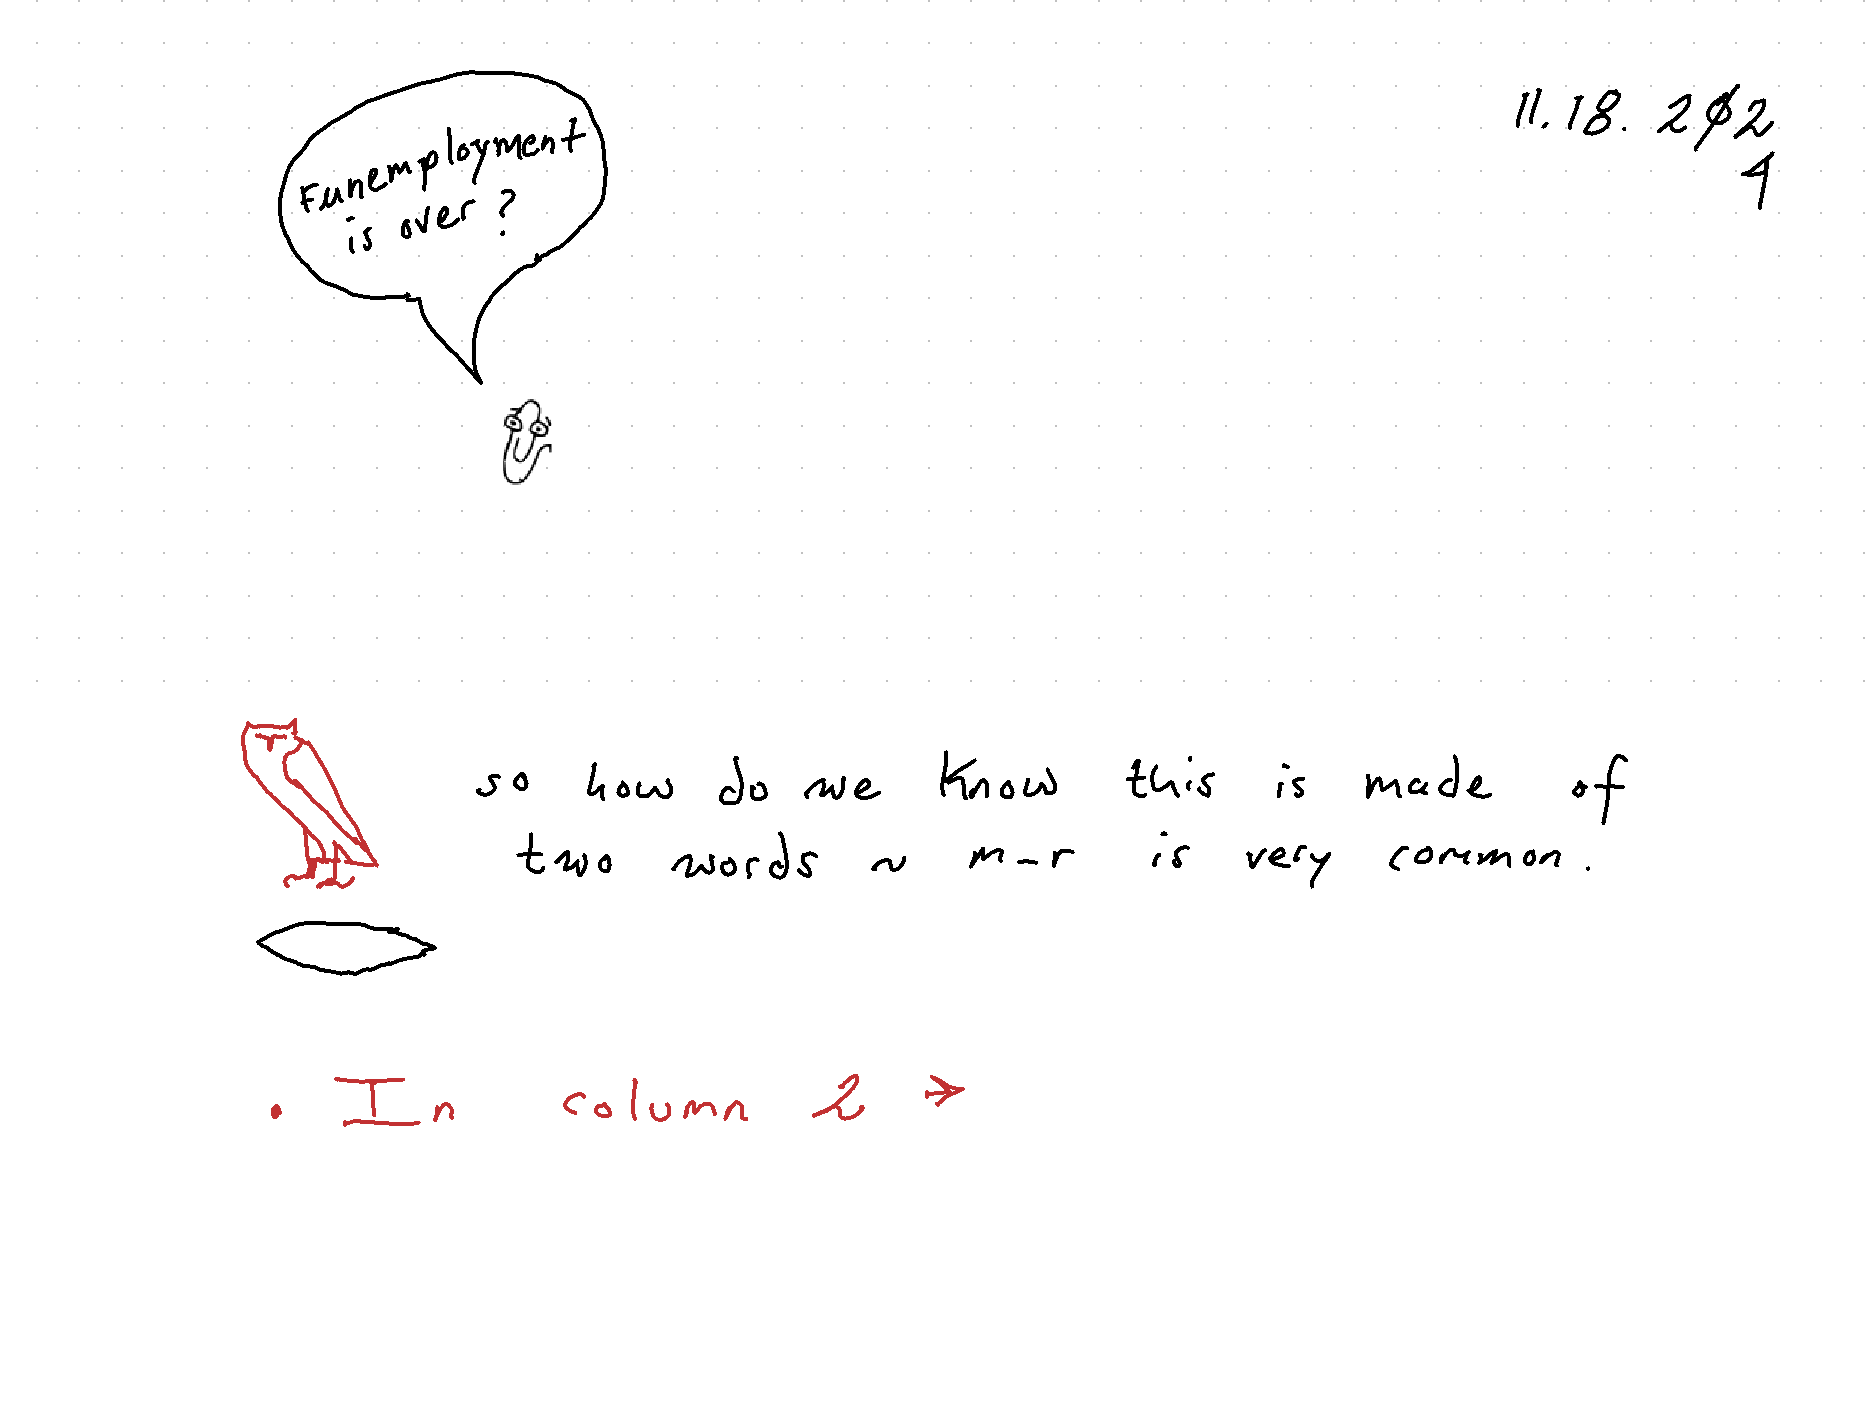 11.18.202
4
Funemployment
is over?
so how do we know this is made of
two words ~ m-r is very common.
• In column 2 →